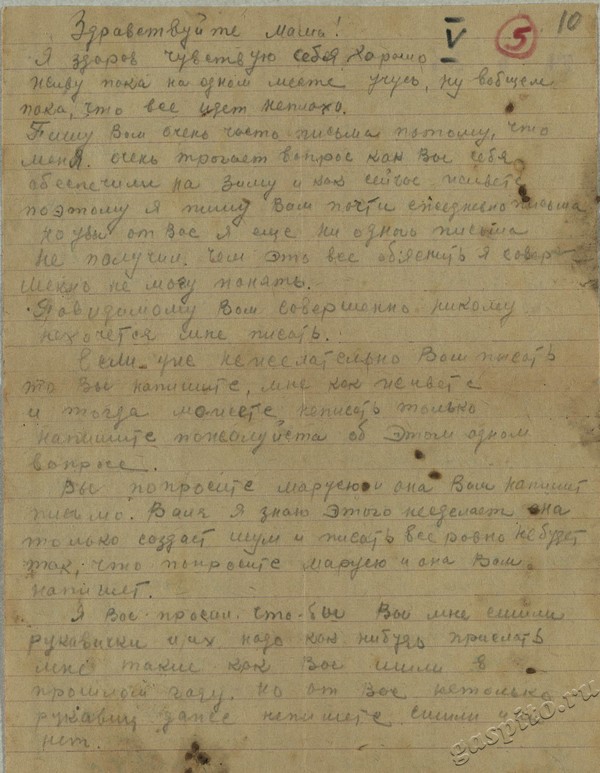 Здравствуйте мама!
V
5
10
Я здоров чувствую себя хорошо
живу пока на одном месте учусь, ну вобщем
пока, что все идет неплохо.
Пишу Вам очень часто письма потому, что
меня очень трогает вопрос как Вы себя
обеспечили на зиму и как сейчас
поэтому я пишу Вам почти ежедневно письма
но увы от Вас я еще ни одного письма
не получил. Чем это все обяснить я совер-
шенно не могу понять.
Повидимому Вам совершенно никому
нехочется мне писать.
Если уже нежелательно Вам писать
то Вы напишите, мне как живете
и тогда можете неписать только
напишите пожалуйста об этом одном
вопросе.
Вы попросите марусю и она Вам напишит
письмо. Валя я знаю этого несделает она
только создаст шум и писать все ровно не будет
так, что попросите марусю и она Вам
напишет.
Я Вас просил что-бы Вы мне сшили
рукавички и их надо как нибудь прислать
мне такие как Вы шили в
прошлом году. Но от Вас нетолько
рукавиц даже непишете сшили или
нет.
gaspito.ru